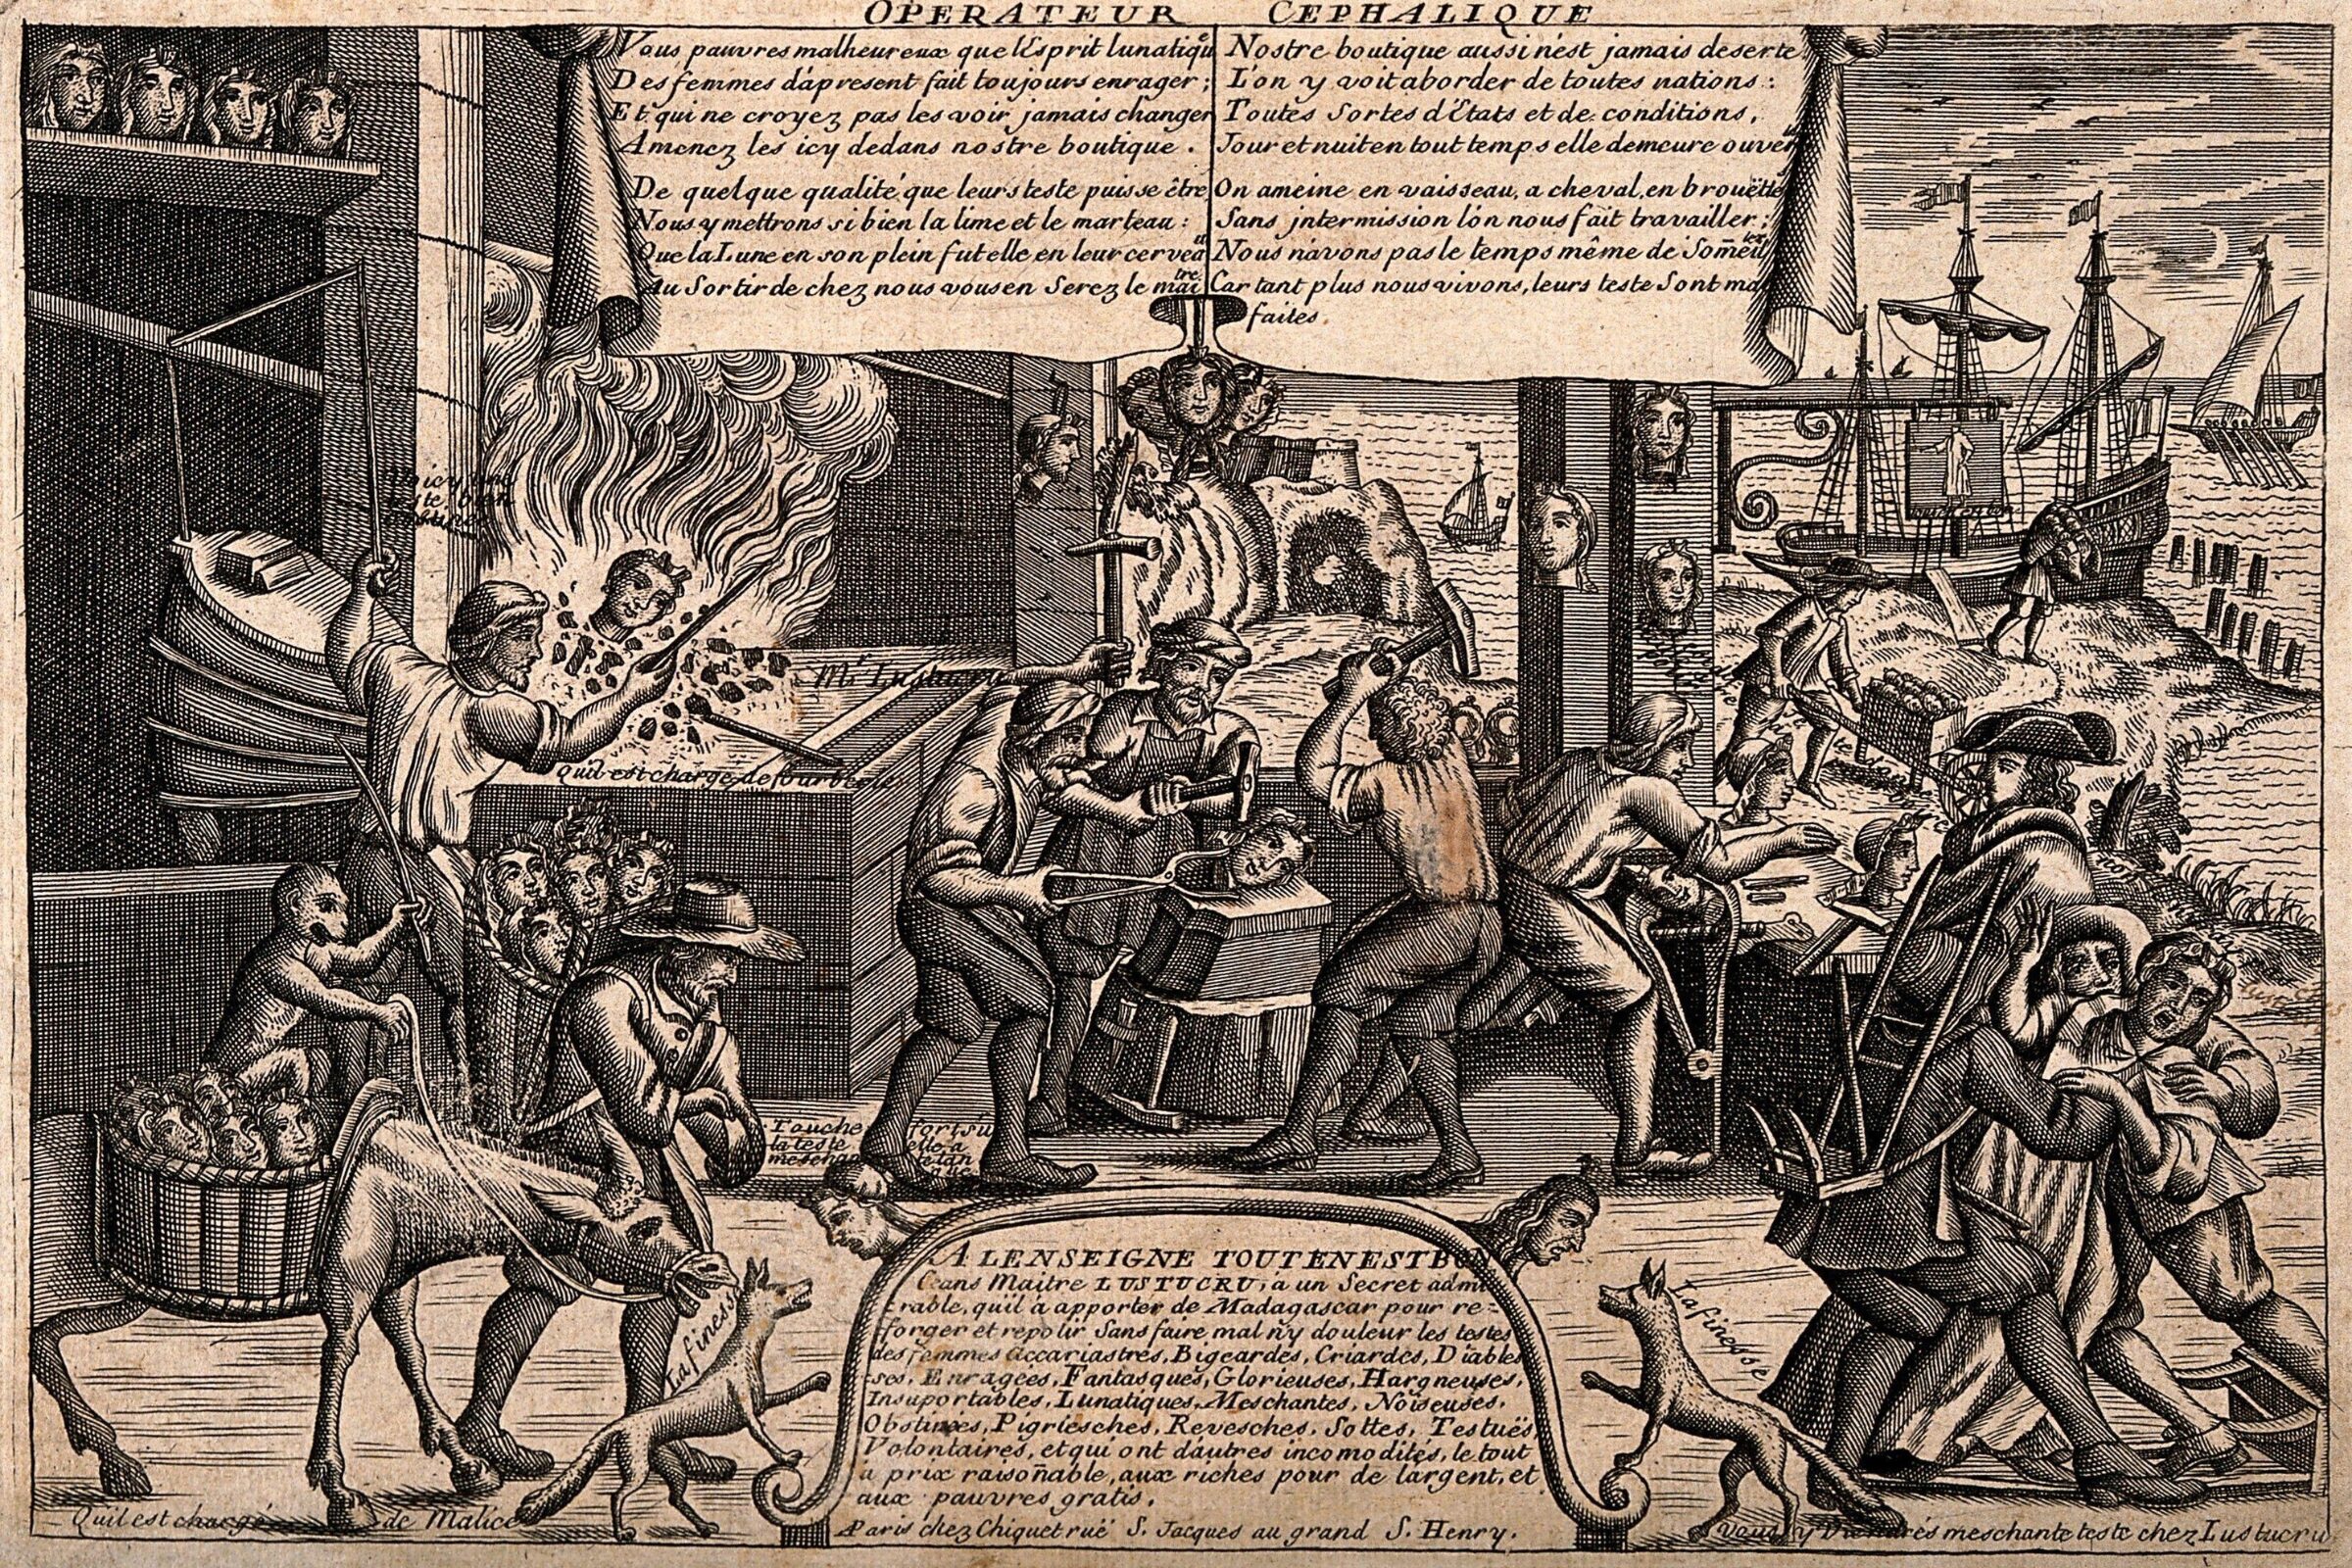 OPERATEUR CEPHALIQUE
Vous pauvres malheureux que l'Esprit lunatiqu
Des femmes d'apresent fait toujours enrager ;
Et qui ne croyez pas les voir jamais changer
Amenez les icy dedans nostre boutique .
De quelque qualité que leurs teste puisse être
Nous y mettrons si bien la lime et le marteau :
Que la Lune en son plein fut elle en leur cerveau
Au Sortir de chez nous vous en Serez le maitre
Nostre boutique aussi n'est jamais deserte
L'on y voit aborder de toutes nations :
Toutes Sortes d'Etats et de conditions ,
Jour et nuit en tout temps elle demeure ouver
On ameine en vaisseau, a cheval, en brouëtte
Sans jntermission l'on nous fait travailler ;
Nous n'avons pas le temps même de Som̄eiller
Car tant plus nous vivons, leurs teste Sont mal
faites .
Mr. Lustucru
qu'il est charge de fourberie
Touche
la teste
meschan
La finesse
La finesse
A LENSEIGNE TOUT EN EST BON
Ceans Maitre LUSTUCRU, a un Secret admi
rable, qu'il à apporter de Madagascar pour re=
forger et repolir Sans faire mal n'y douleur les testes
des femmes Accariastres, Bigeardes, Criardes, Diables
ses, Enragées, Fantasques, Glorieuses, Hargneuses,
Insuportables, Lunatiques, Meschantes, Noiseuses,
Obstinées, Pigriesches, Revesches, Sottes, Testuës
Volontaires, et qui ont d'autres incomodités, le tout
à prix raison̄able, aux riches pour de l'argent, et
aux pauvres gratis .
Paris chez Chiquet ruë S. Jacques au grand S. Henry .
Qu'il est chargé de Malice
Vous y meschante teste chez Lustucru